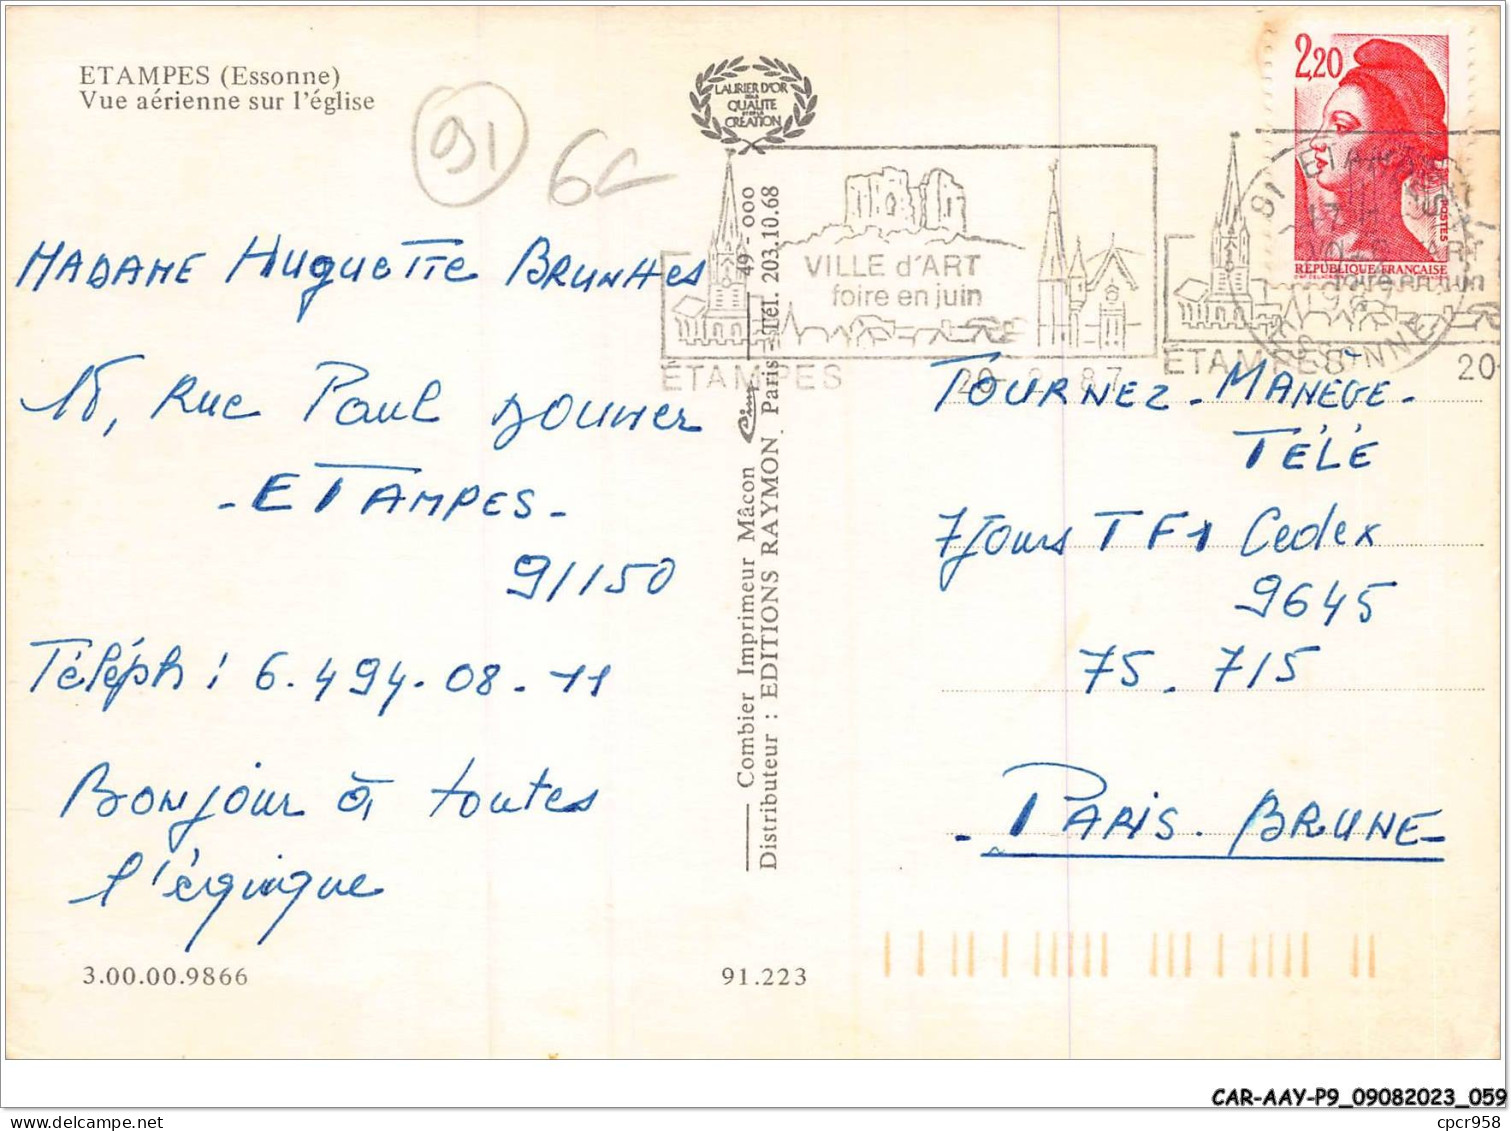 ETAMPES (Essonne)
Vue aérienne sur l'église
91
LAURIER D'OR
QUALITE
CREATION
2,20
POSTES
RÉPUBLIQUE FRANÇAISE
VILLE d'ART
foire en juin
ÉTAMPES
20-2-87
91 ETAMPES
ESSONNE
foire en juin
ÉTAMPES
20-
MADAME Huguette BRUNHes
15, Rue Paul DOUMer
- ETAMPES -
91150
Téléph : 6.494.08.11
Bonjour à toutes
l'équique
Combier Imprimeur Mâcon Cim 49 - 000
Distributeur : EDITIONS RAYMON. Paris - Tél. 203.10.68
TOURNEZ - MANEGE -
TÉLÉ
7 Jours TF1 Cedex
9645
75. 715
- PARIS. BRUNE -
3.00.00.9866
91.223
CAR-AAY-P9_09082023_059
cpcr958